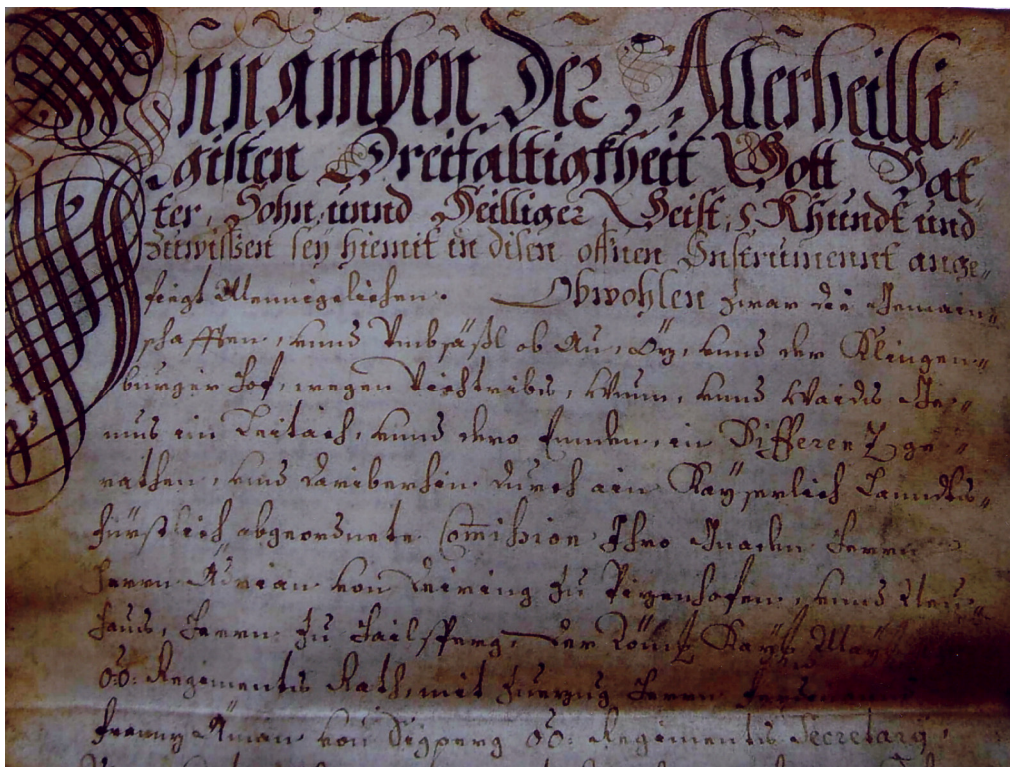 Inn Namben der Allerheilli
gisten Dreifaltigkheit Gott Vat
ter, Sohn, unnd Heilliger Geist, Khundt und
zuwissen sey hiemit in disen offnen Instrumennt ange
fiegt Mennigelichen. Obwohlen zwar die Gemain
schafften, unnd Umbsäßl ob Au, Öz, unnd der Klingen
burger Hof, wegen Viechtribs, Wunn, unnd Waids
im Leitach, unnd dero Ennden, in Differenz ge
rathen, unnd dariberhin durch ain Kayserlich Lanndts
fürstlich abgeordnete Comihsion Ihro Gnaden Herrn
Herrn Adrian von Deiring zu Pizenhofen, unnd Neu
haus, Herrn zu Hailsperg, der Röm: Kay: May:
OÖ: Regiments Rath, mit Zuezug Herrn
Franz Aman von Sigperg OÖ: Regiments Secretary